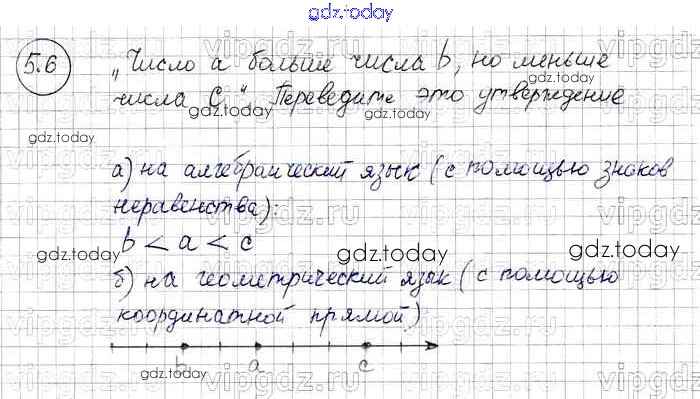 gdz.today
5.6
„Число а больше числа b, но меньше
числа C". Переведите это утверждение
gdz.today
gdz.today
gdz.today
а) на алгебраический язык (с помощью знаков
неравенства):
b < a < c
gdz.today
gdz.today
gdz.today
б) на геометрический язык (с помощью
координатной прямой)
b a c
gdz.today
gdz.today
gdz.today